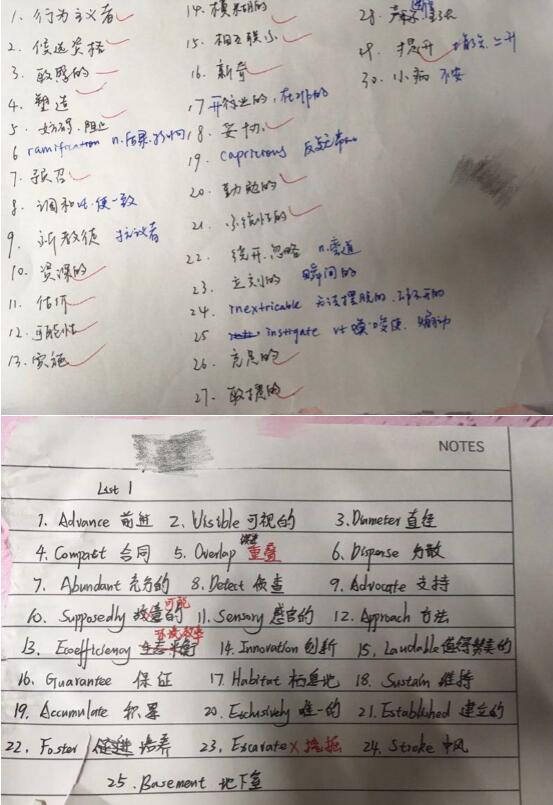 1. 行为主义者
2. 候选资格
3. 敌
4. 塑造
5. 妨碍.阻止
6 ramification n.后果.
7.
8. 调和 vt.使一致
9. 新教徒 抗议者
10. 资源的
11. 估价
12. 可能性
13. 实施
14. 模糊的
15. 相互
16. 新奇
17
18. 妥协
19. capricious 反复无常
20. 勤勉的
21.
22. 绕开.忽略 n.弯道
23. 立刻的 瞬间的
24. inextricable 无法摆脱的
25 instigate vt 唆使. 煽动
26. 充足的
27.
28.
29. 提升
30. 小病 不安
NOTES
List 1
1. Advance 前进 2. Visible 可视的 3. Diameter 直径
4. Compact 合同 5. Overlap 重叠 6. Disperse 分散
7. Abundant 充分的 8. Detect 侦查 9. Advocate 支持
可能
10. Supposedly 11. Sensory 感官的 12. Approach 方法
13. Ecoefficiency 生态平衡 14. Innovation 创新 15. Laudable 值得赞美的
16. Guarantee 保证 17. Habitat 栖息地 18. Sustain 维持
19. Accumulate 积累 20. Exclusively 唯一的 21. Established 建立的
22. Foster 促进 培养 23. Excavate × 挖掘 24. Stroke 中风
25. Basement 地下室